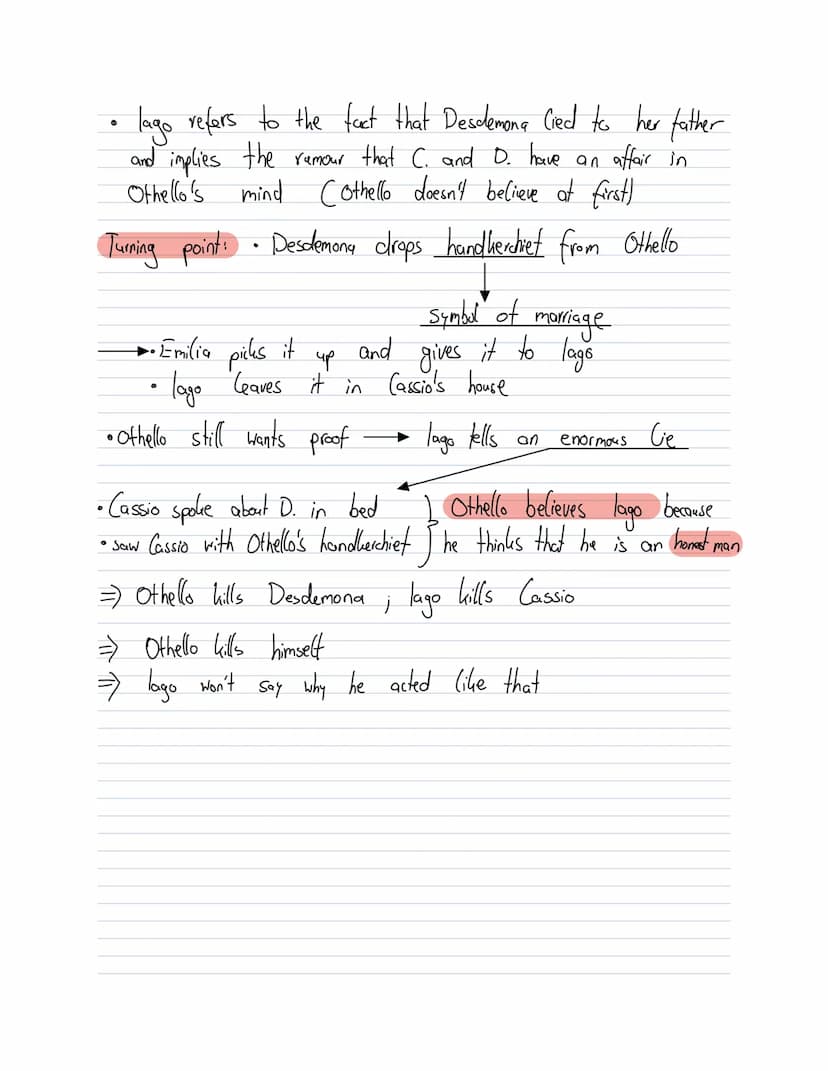 • Iago refers to the fact that Desdemona lied to her father
and implies the rumour that C. and D. have an affair in
Othello's mind (Othello doesn't believe at first)
Turning point: • Desdemona drops handkerchief from Othello
symbol of marriage
• Emilia picks it up and gives it to Iago
• Iago leaves it in Cassio's house
• Othello still wants proof → Iago tells an enormous lie
• Cassio spoke about D. in bed } Othello believes Iago because
• saw Cassio with Othello's handkerchief } he thinks that he is an honest man
⇒ Othello kills Desdemona ; Iago kills Cassio
⇒ Othello kills himself
⇒ Iago won't say why he acted like that